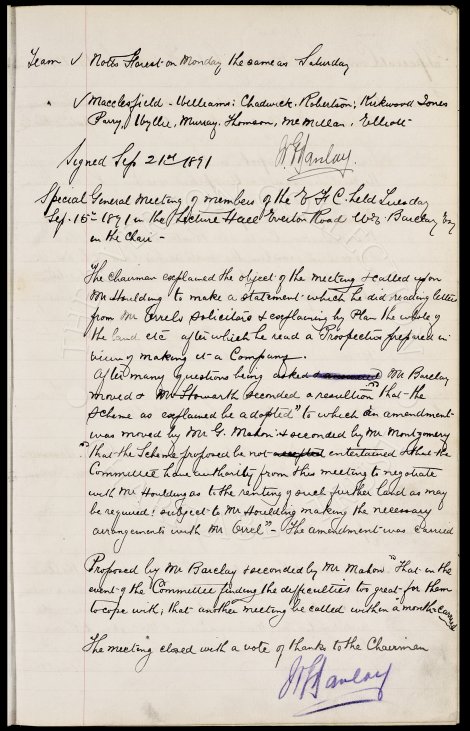 Team v Notts Forest on Monday the same as Saturday
" v Macclesfield - Williams: Chadwick, Robertson; Kirkwood Jones
Parry, Wyllie, Murray. Thomson, McMillan, Elliott
Signed Sep 21st 1891
Special General Meeting of members of the E F C. held Tuesday
Sep. 15th 1891 in the Lecture Hall Everton Road W. E. Barclay Esq
in the Chair -
The Chairman explained the object of the meeting & called upon
Mr Houlding to make a statement which he did reading letters
from Mr Orrels Solicitors & explaining by Plan the whole of
the land etc after which he read a Prospectus prepared in
view of making it a Company.
After many questions being asked Mr Barclay
moved & Mr Howarth seconded a resolution "that the
Scheme as explained be adopted" to which an amendment
was moved by Mr G. Mahon & seconded by Mr Montgomery
"that the Scheme proposed be not accepted entertained & that the
Committee have authority from this meeting to negotiate
with Mr Houlding as to the renting of such further land as may
be required: subject to Mr Houlding making the necessary
arrangements with Mr Orrel" - The amendment was carried
Proposed by Mr Barclay & seconded by Mr Mahon "That in the
event of the Committee finding the difficulties too great for them
to cope with; that another meeting be called within a month" carried
The meeting closed with a vote of thanks to the Chairman